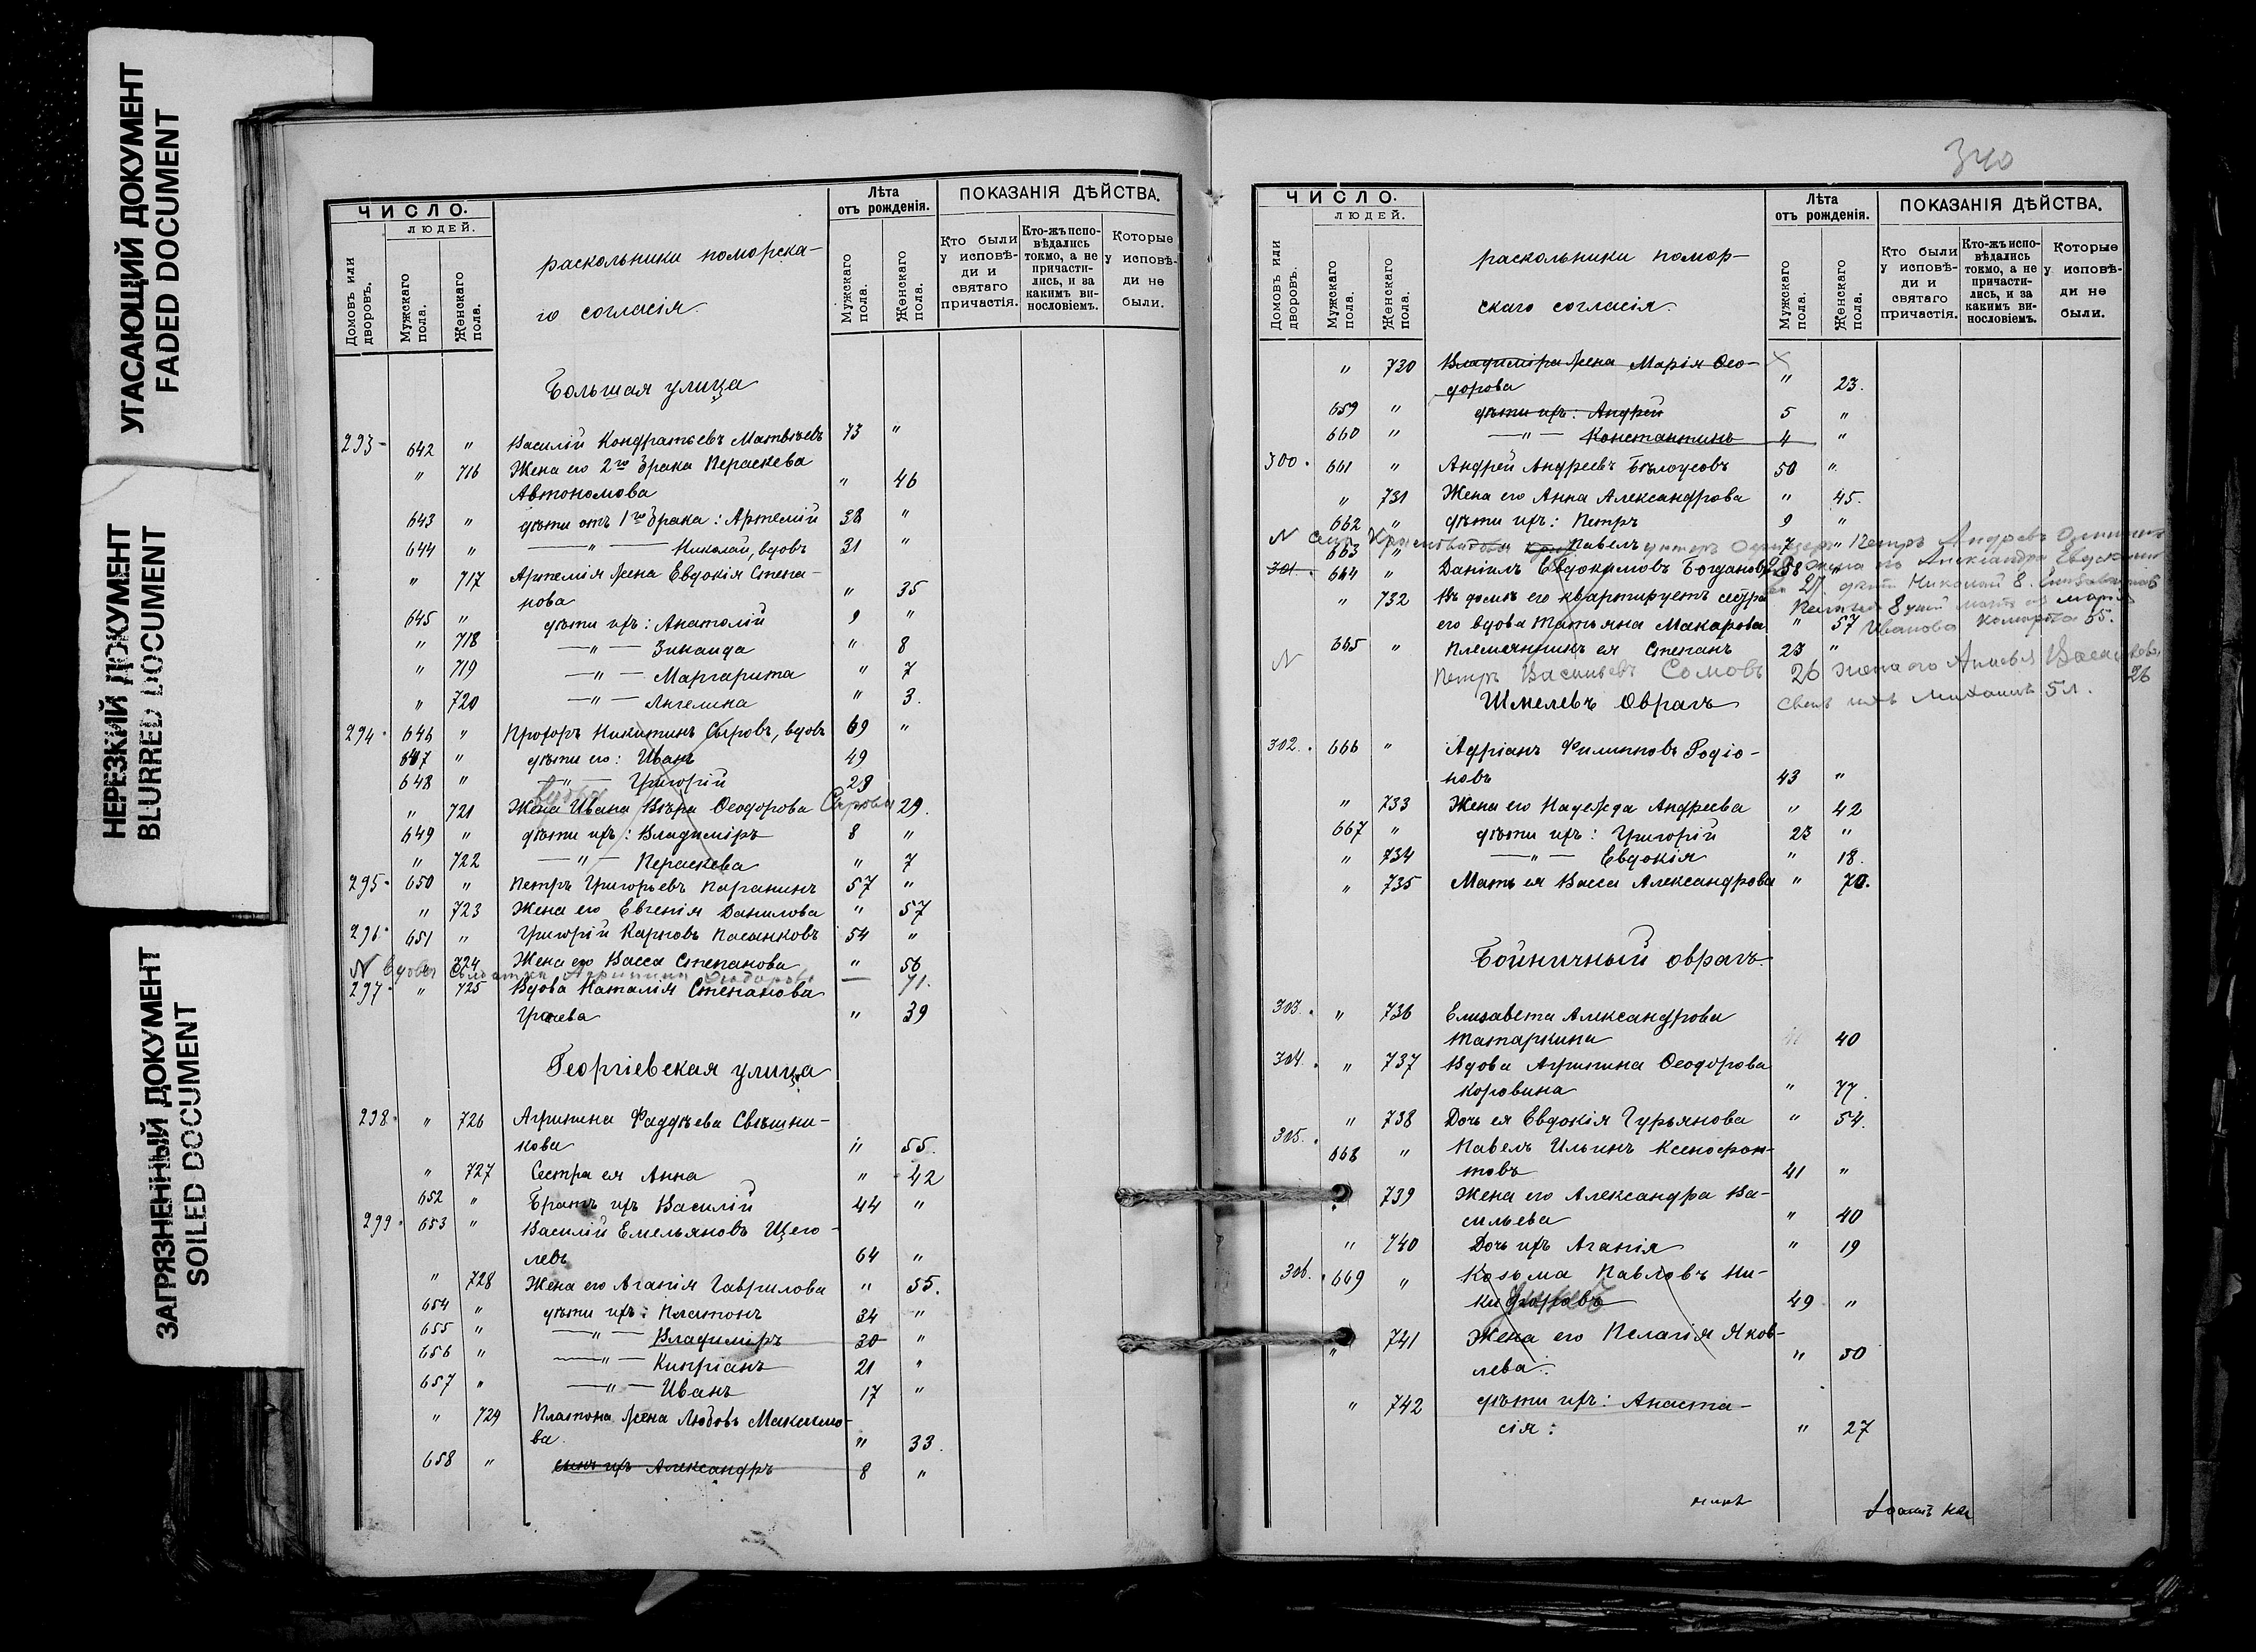 УГАСАЮЩИЙ ДОКУМЕНТ
FADED DOCUMENT
НЕРЕЗКИЙ ДОКУМЕНТ
BLURRED DOCUMENT
ЗАГРЯЗНЕННЫЙ ДОКУМЕНТ
SOILED DOCUMENT
ЧИСЛО.
ЛЮДЕЙ.
Домовъ или дворовъ.
Мужскаго пола.
Женскаго пола.
раскольники поморска-
го согласія.
Лѣта
отъ рожденія.
Мужскаго пола.
Женскаго пола.
ПОКАЗАНІЯ ДѢЙСТВА.
Кто были у исповѣ-ди и святаго причастія.
Кто-жъ испо-вѣдались токмо, а не причасти-лись, и за какимъ ви-нословіемъ.
Которые у исповѣ-ди не были.
Большая улица
293 642 " Василій Кондратьевъ Матвѣевъ 73 "
" 716 Жена его 2го брака Пераскева
Автономова " 46
643 " дѣти отъ 1го брака: Артемій 38 "
644 " —"— Николай, вдовъ 31 "
" 717 Артемія жена Евдокія Степа-
нова " 35
645 " дѣти ихъ: Анатолій 9 "
" 718 —"— Зинаида " 8
" 719 —"— Маргарита " 7
" 720 —"— Ангелина " 3.
294 646 " Прохоръ Никитинъ Сыровъ, вдовъ 69 "
647 " дѣти его: Иванъ 49
648 " —"— Григорій 23
вдова
" 721 Жена Ивана Вѣра Ѳеодорова Сырова 29.
649 " дѣти ихъ: Владиміръ 8 "
" 722 —"— Пераскева " 7
295 650 " Петръ Григорьевъ Паранинъ 57 "
" 723 Жена его Евгенія Данилова " 57
296 651 " Григорій Карповъ Пасынковъ 54 "
" 724 Жена его Васса Степанова " 56
N вдова Агрипина Ѳеодорова — 71.
297 " 725 Вдова Наталія Степанова
Грачева " 39
Георгіевская улица
298 " 726 Агрипина Фаддѣева Свѣшни-
кова " 55.
" 727 Сестра ея Анна " 42
652 " Братъ ихъ Василій 44 "
299 653 " Василій Емельяновъ Щего-
левъ 64 "
" 728 Жена его Агапія Гаврилова " 55.
654 " дѣти ихъ: Платонъ 34 "
655 " —"— Владиміръ 30 "
656 " —"— Кипріанъ 21 "
657 " —"— Иванъ 17 "
" 729 Платона жена Любовь Максимо-
ва " 33.
658 " сынъ ихъ Александръ 8 "
340
ЧИСЛО.
ЛЮДЕЙ.
Домовъ или дворовъ.
Мужскаго пола.
Женскаго пола.
раскольники помор-
скаго согласія.
Лѣта
отъ рожденія.
Мужскаго пола.
Женскаго пола.
ПОКАЗАНІЯ ДѢЙСТВА.
Кто были у исповѣ-ди и святаго причастія.
Кто-жъ испо-вѣдались токмо, а не причасти-лись, и за какимъ ви-нословіемъ.
Которые у исповѣ-ди не были.
" 730 Владиміра жена Марія Ѳео-
дорова " 23.
659 " дѣти ихъ: Андрей 5 "
660 " —"— Константинъ 4 "
300. 661 " Андрей Андреевъ Бѣлоусовъ 50 "
" 731 Жена его Анна Александрова " 45.
662 " дѣти ихъ: Петръ 9 "
663 " Павелъ 7 "
унтеръ Офицеръ Петръ Андреевъ
301. 664 " Даніилъ Евдокимовъ Богдановъ 58 "
жена его Александра
27. дѣти Николай 8.
" 732 Въ домѣ его квартируетъ сестра
его вдова Татьяна Макарова " 57
Иванова 55.
665 " Племянникъ ея Степанъ 23 "
N Петръ Васильевъ Сомовъ 26 жена его 26
сынъ ихъ Михаилъ 5 л.
Шмелевъ Оврагъ
302. 666 " Адріанъ Филипповъ Родіо-
новъ 43 "
" 733 Жена его Надежда Андреева " 42
667 " дѣти ихъ: Григорій 23 "
" 734 —"— Евдокія " 18.
" 735 Мать ея Васса Александрова " 70.
Бойничный оврагъ
303. " 736 Елизавета Александрова
Татаркина 40
304. " 737 Вдова Агрипина Ѳеодорова
Коровина " 77.
" 738 Дочь ея Евдокія Гурьянова " 54.
305. 668 " Павелъ Ильинъ Ксенофон-
товъ 41 "
" 739 Жена его Александра Ва-
сильева " 40
" 740 Дочь ихъ Агапія " 19
306. 669 " Козьма Павловъ Ни-
кифоровъ 49 "
" 741 Жена его Пелагія Яков-
лева. " 50
" 742 дѣти ихъ: Анаста-
сія: " 27